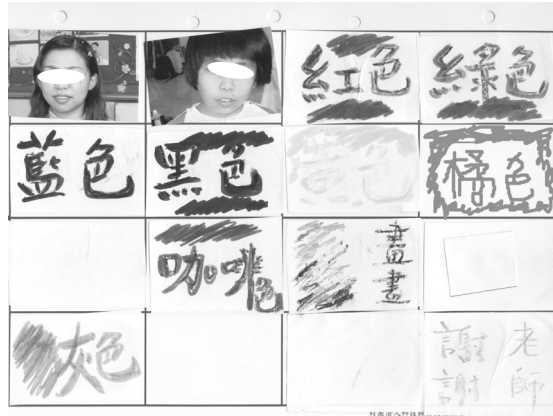 紅色
綠色
藍色
黑色
橘色
咖啡色
畫畫
灰色
謝謝
老師